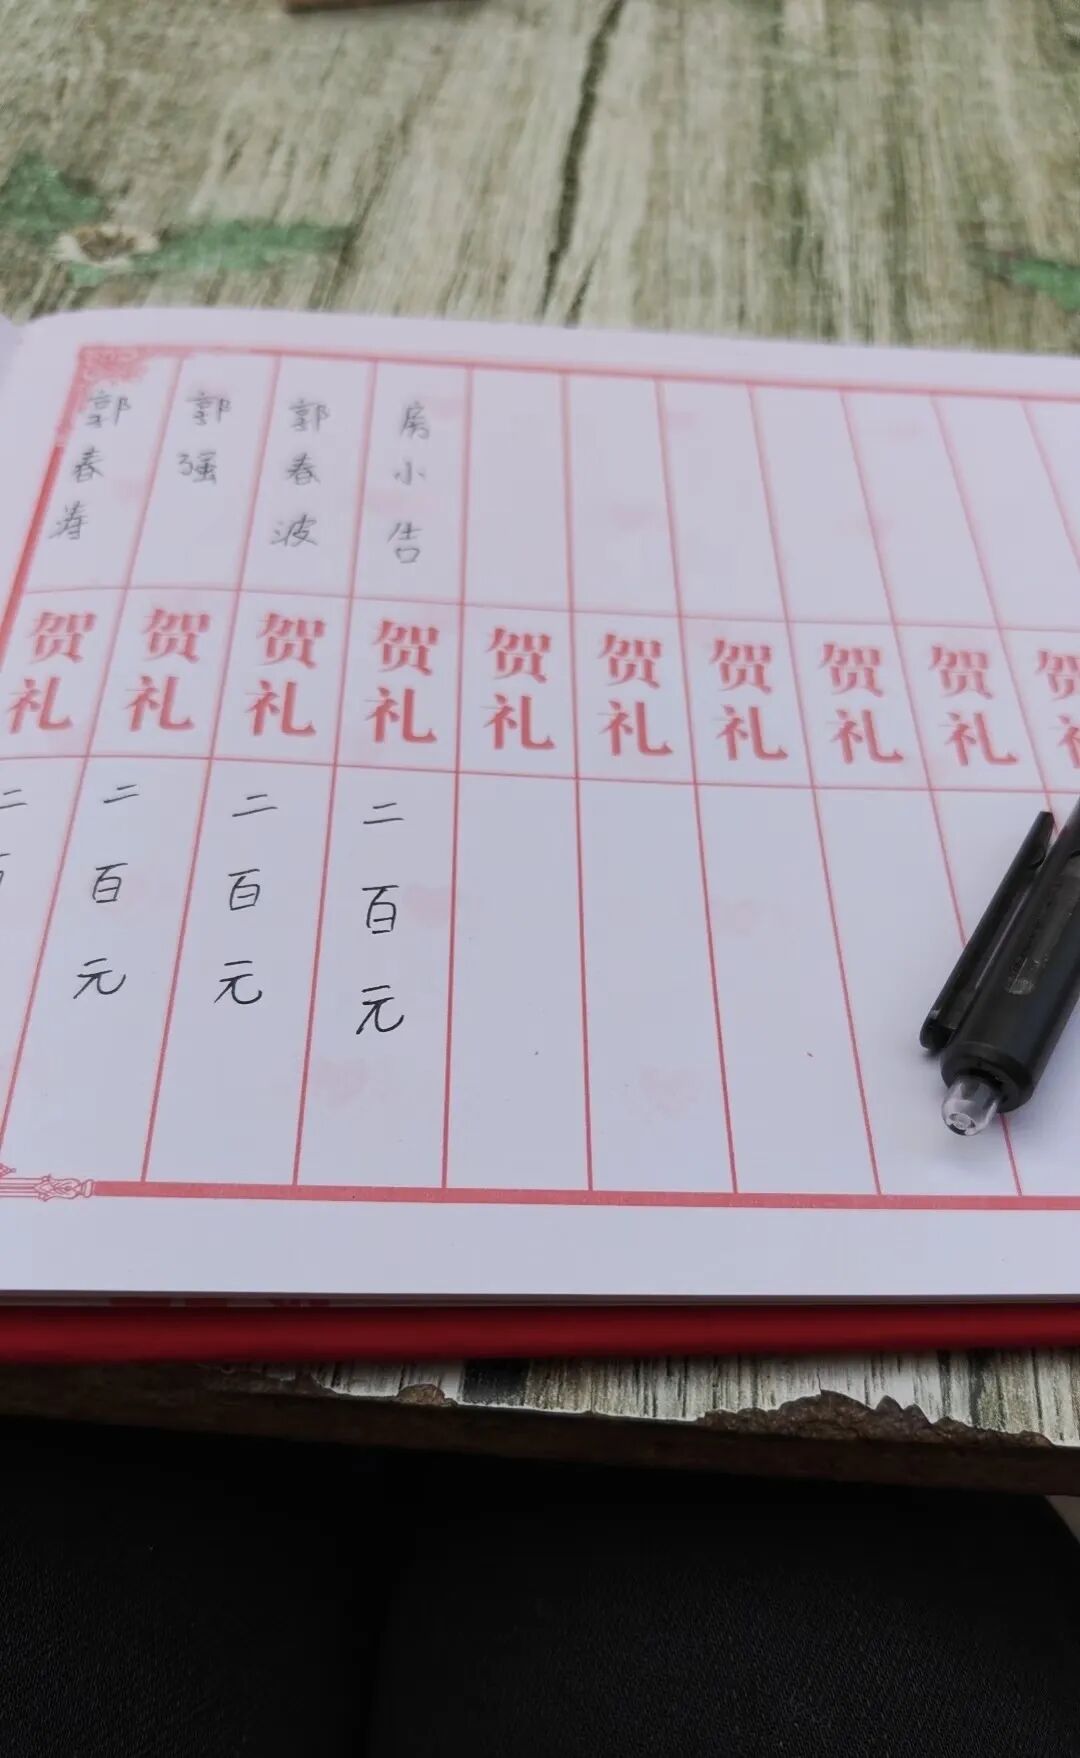 郭春涛
贺礼
二百
郭强
贺礼
二百元
郭春波
贺礼
二百元
房小告
贺礼
二百元
贺礼
贺礼
贺礼
贺礼
贺礼
贺礼